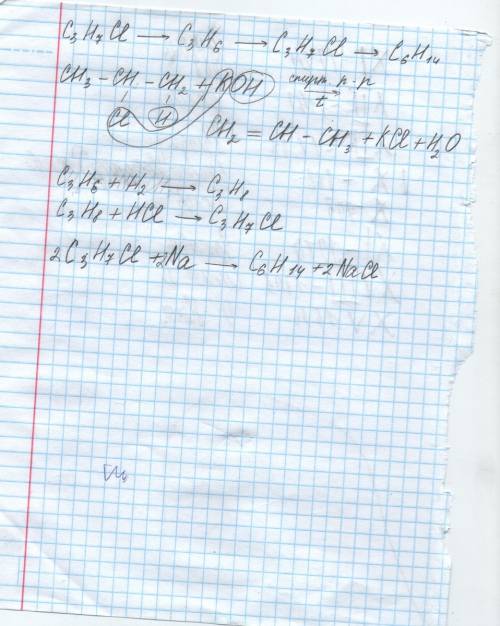 C₃H₇Cl → C₃H₆ → C₃H₇Cl → C₆H₁₄
CH₃ - CH - CH₂ + KOH спирт. р-р t →
Cl H CH₂ = CH - CH₃ + KCl + H₂O
C₃H₆ + H₂ → C₃H₈
C₃H₈ + HCl → C₃H₇Cl
2C₃H₇Cl + 2Na → C₆H₁₄ + 2NaCl